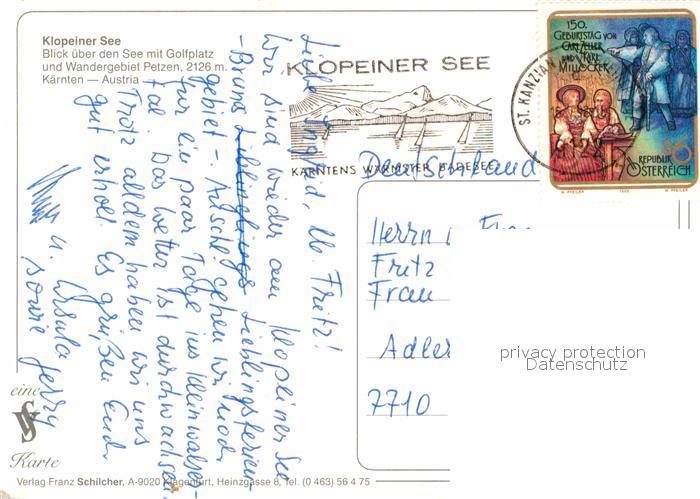 Klopeiner See
Blick über den See mit Golfplatz
und Wandergebiet Petzen, 2126 m.
Kärnten — Austria
KLOPEINER SEE
KÄRNTENS WÄRMSTER BADESEE
ST. KANZIAN
150.
GEBURTSTAG VON
CARL ZELLER
UND KARL
MILLÖCKER
S6
REPUBLIK
ÖSTERREICH
Liebe Ingrid, lb. Fritz!
Wir sind wieder am Klopeiner See
Lieblingsferien-
gebiet -. Anschl. gehen wir noch
für ein paar Tage ins Kleinwalser-
tal. Das Wetter ist durchwachsen.
Trotz alldem haben wir uns
gut erholt. Es grüßen Euch
u. Ursula
sowie Jerry
Deutschland
Herrn
Fritz
Frau
Adler
7710
privacy protection
Datenschutz
eine
VS
Karte
Verlag Franz Schilcher, A-9020 Klagenfurt, Heinzgasse 8, Tel. (0 463) 56 4 75